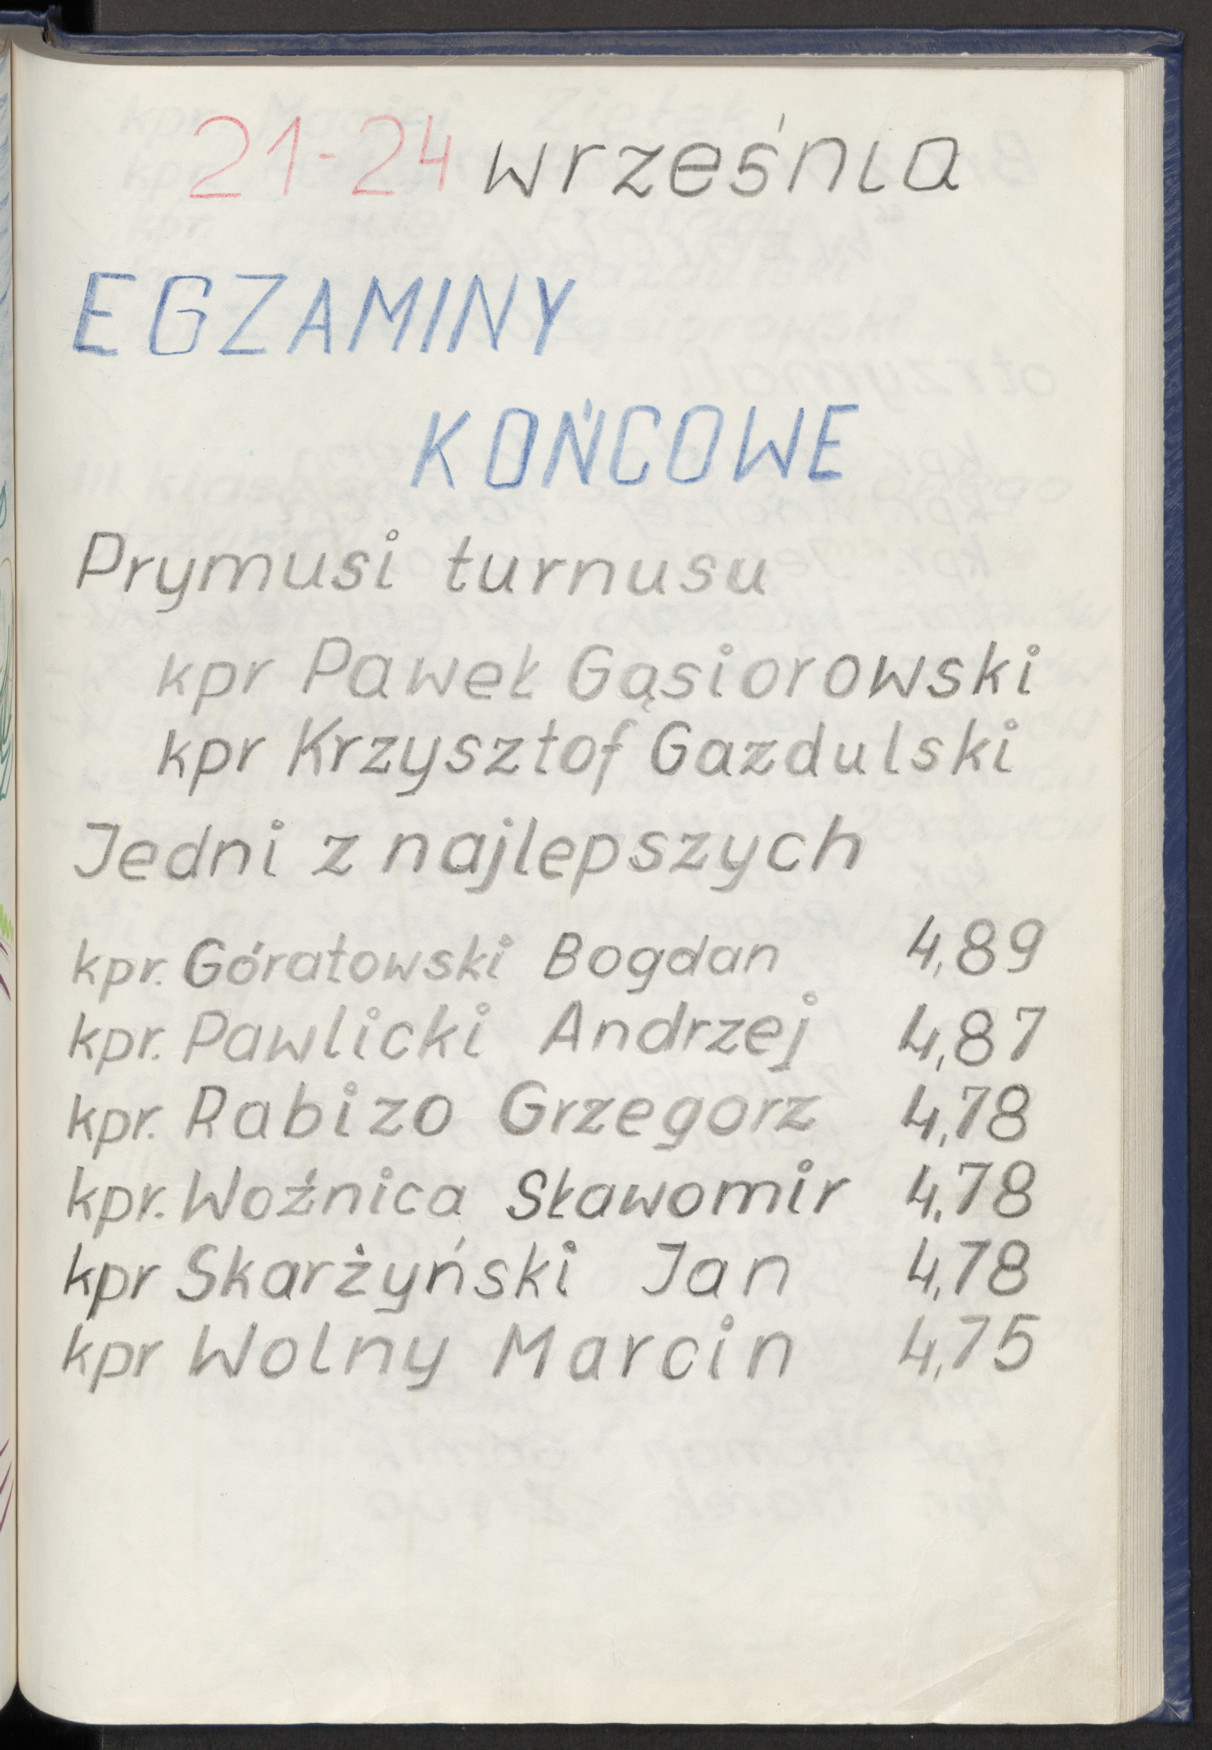 21-24 września
EGZAMINY
KOŃCOWE
Prymusi turnusu
kpr Paweł Gąsiorowski
kpr Krzysztof Gazdulski
Jedni z najlepszych
kpr. Górałowski Bogdan 4,89
kpr. Pawlicki Andrzej 4,87
kpr. Rabizo Grzegorz 4,78
kpr. Woźnica Sławomir 4,78
kpr Skarżyński Jan 4,78
kpr Wolny Marcin 4,75